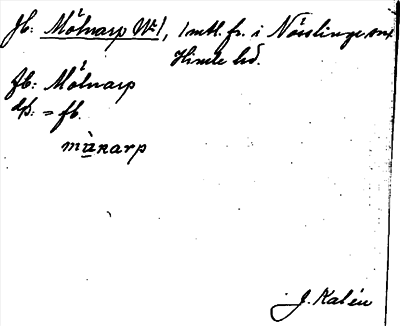 fb: Mölnarp Nr 1, 1 mtl. fr. i Nösslinge sn,
Himle hd.
fb: Mölnarp
dp: = fb.
mùnarp
J. Kalén